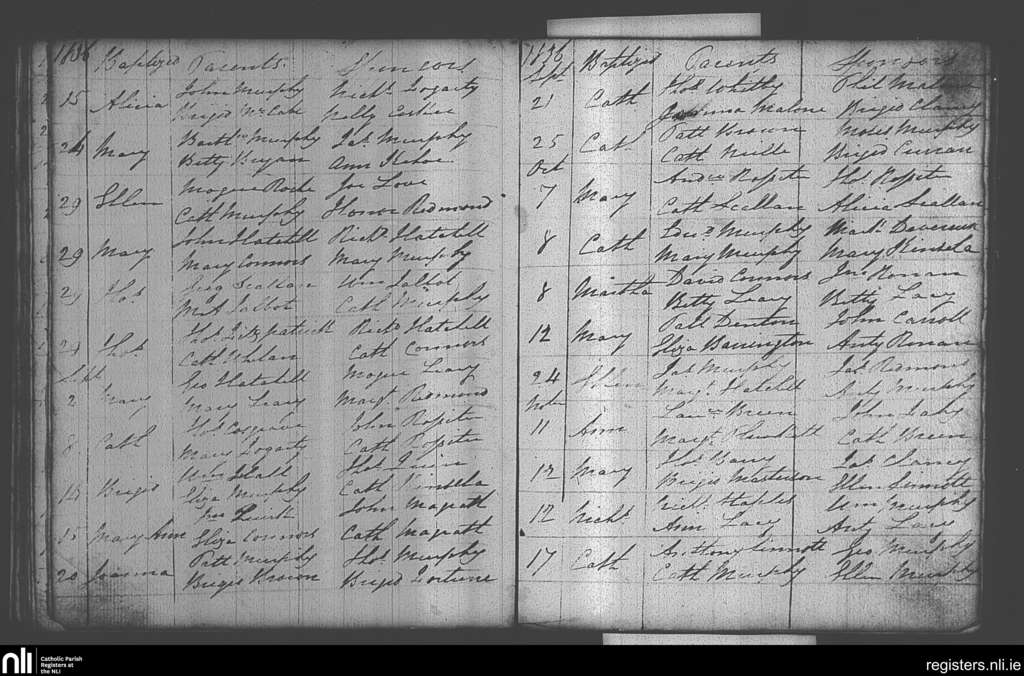 1836 Baptized Parents. Sponsors
15 Alicia John Murphy Nichs Fogarty
Brigid McCabe Nelly
24 Mary Barthw Murphy Jas Murphy
Betty Bryan Ann Kehoe
29 Ellen Mogue Roche Joe Love
Cath Murphy Honor Redmond
29 Mary John Hatchell Richd Hatchell
Mary Connors Mary Murphy
29 Thos Scallan Wm Talbot
Mt Talbot Cath Murphy
29 Thos Thos Fitzpatrick Richd Hatchell
Cath Whelan Cath Connors
Sept Geo Hatchell Mogue Leary
2 Mary Mary Leary Margt Redmond
Thos Cosgrave John Rositer
8 Cath Mary Fogarty Cath Rositer
Wm Hall Thos Quinn
14 Brigid Eliza Murphy Cath Kinsela
Quirk John Magrath
15 Mary Ann Eliza Connors Cath Magrath
Patt Murphy Thos Murphy
20 Joanna Brigid Brown Brigid Fortune
1836 Baptized Parents Sponsors
Sept Thos Whitty Phil
21 Cath Joanna Malone Brigid Clancy
25 Cath Patt Brown Moses Murphy
Cath Neille Brigid Curran
Oct Andw Rositer Thos Rositer
7 Mary Cath Scallan Alicia Scallan
8 Cath Edwd Murphy Matt Devereux
Mary Murphy Mary Kinsela
8 Martha David Connors Jno Ronan
Betty Leary Betty Lacy
12 Mary Patt Denton John Carroll
Eliza Barrington Anty Ronan
24 Ellen Jas Murphy Jas Redmond
Margt Hatchell Anty Murphy
Nov Laurce Breen John Leahy
11 Ann Margt Cath Breen
12 Mary Thos Barry Jas Clancy
Brigid Masterson Ellen Sinnott
12 Nichs Nichs Staples Wm Murphy
Ann Lacy Anty Lacy
17 Cath Anthony Sinnott Geo Murphy
Cath Murphy Ellen Murphy
nli
Catholic Parish
Registers at
the NLI
registers.nli.ie